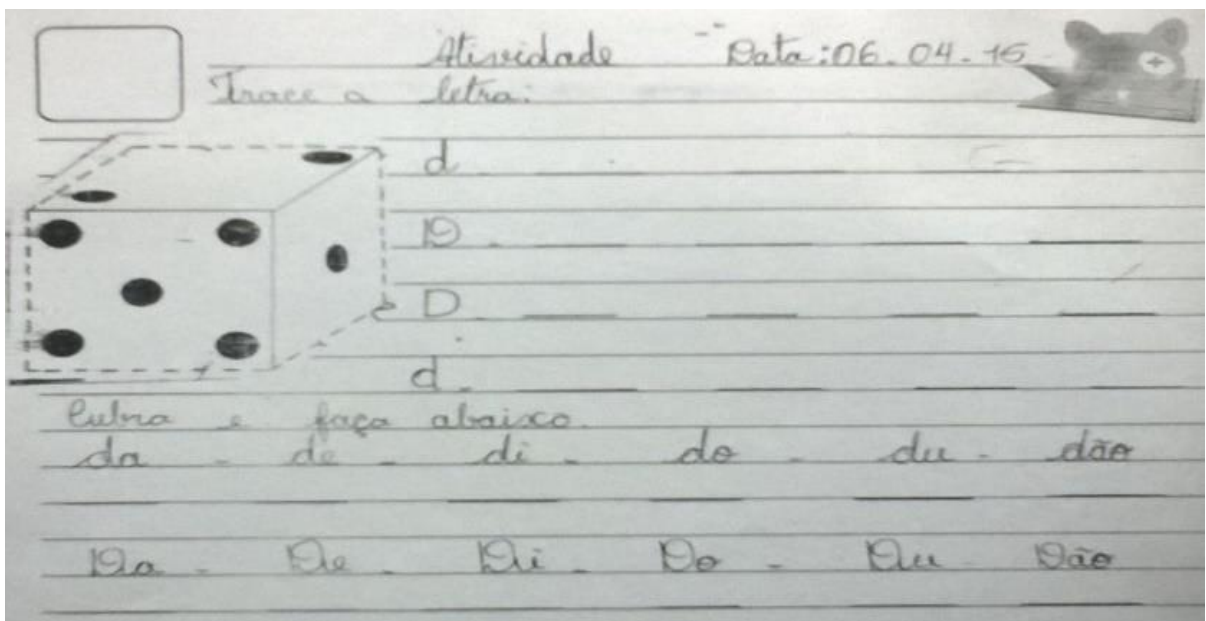 Atividade Data: 06.04.15
Trace a letra:
d
D
D
d
Cubra e faça abaixo.
da - de - di - do - du - dão
Da - De - Di - Do - Du - Dão